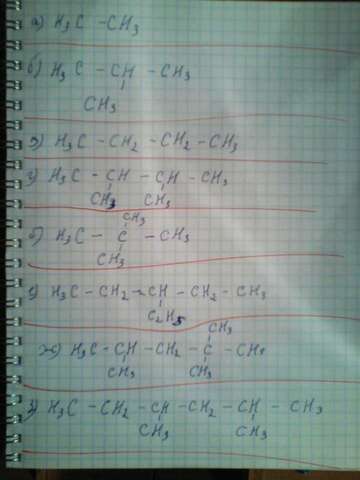 а) H₃C — CH₃
б) H₃C — CH — CH₃
CH₃
в) H₃C — CH₂ — CH₂ — CH₃
г) H₃C — CH — CH — CH₃
CH₃ CH₃
CH₃
д) H₃C — C — CH₃
CH₃
е) H₃C — CH₂ — CH — CH₂ — CH₃
C₂H₅
CH₃
ж) H₃C — CH — CH₂ — C — CH₃
CH₃ CH₃
з) H₃C — CH₂ — CH — CH₂ — CH — CH₃
CH₃ CH₃